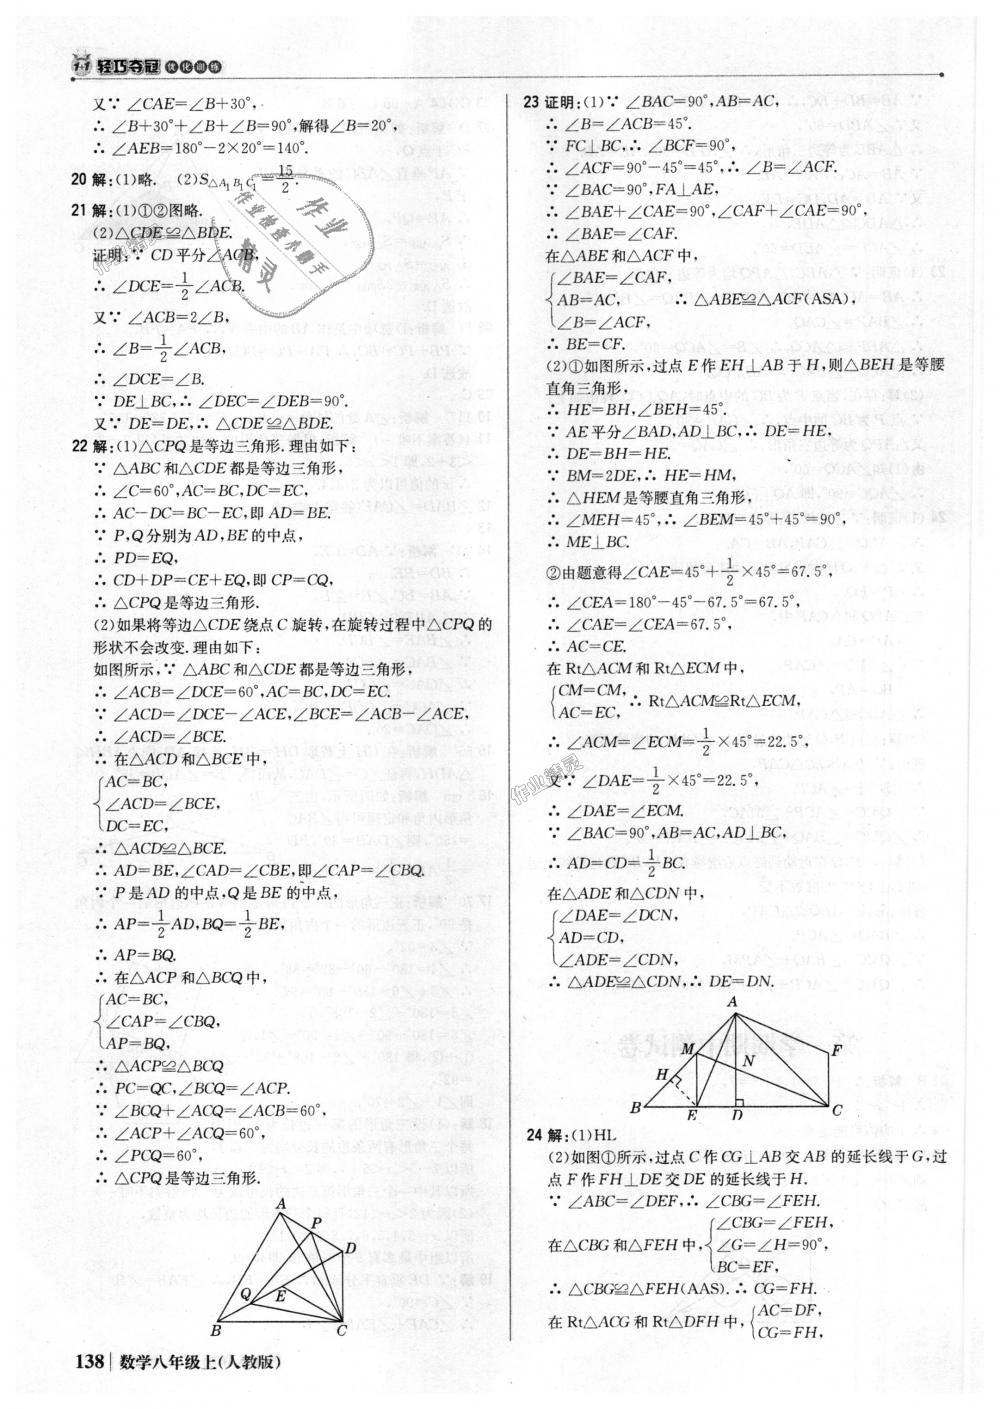 1+1 轻巧夺冠 优化训练
又∵ ∠CAE=∠B+30°,
∴ ∠B+30°+∠B+∠B=90°,解得∠B=20°,
∴ ∠AEB=180°-2×20°=140°.
20 解:(1)略. (2)S△A₁B₁C₁=15/2.
21 解:(1)①②图略.
(2)△CDE≌△BDE.
证明:∵ CD平分∠ACB,
∴ ∠DCE=1/2∠ACB.
又∵ ∠ACB=2∠B,
∴ ∠B=1/2∠ACB,
∴ ∠DCE=∠B.
∵ DE⊥BC,∴ ∠DEC=∠DEB=90°.
又∵ DE=DE,∴ △CDE≌△BDE.
22 解:(1)△CPQ是等边三角形.理由如下:
∵ △ABC和△CDE都是等边三角形,
∴ ∠C=60°,AC=BC,DC=EC,
∴ AC-DC=BC-EC,即AD=BE.
∵ P,Q分别为AD,BE的中点,
∴ PD=EQ,
∴ CD+DP=CE+EQ,即CP=CQ,
∴ △CPQ是等边三角形.
(2)如果将等边△CDE绕点C旋转,在旋转过程中△CPQ的
形状不会改变.理由如下:
如图所示,∵ △ABC和△CDE都是等边三角形,
∴ ∠ACB=∠DCE=60°,AC=BC,DC=EC.
∵ ∠ACD=∠DCE-∠ACE,∠BCE=∠ACB-∠ACE,
∴ ∠ACD=∠BCE.
∴ 在△ACD和△BCE中,
AC=BC,
∠ACD=∠BCE,
DC=EC,
∴ △ACD≌△BCE.
∴ AD=BE,∠CAD=∠CBE,即∠CAP=∠CBQ.
∵ P是AD的中点,Q是BE的中点,
∴ AP=1/2AD,BQ=1/2BE,
∴ AP=BQ.
∴ 在△ACP和△BCQ中,
AC=BC,
∠CAP=∠CBQ,
AP=BQ,
∴ △ACP≌△BCQ
∴ PC=QC,∠BCQ=∠ACP.
∵ ∠BCQ+∠ACQ=∠ACB=60°,
∴ ∠ACP+∠ACQ=60°,
∴ ∠PCQ=60°,
∴ △CPQ是等边三角形.
A
P
D
E
Q
B C
23 证明:(1)∵ ∠BAC=90°,AB=AC,
∴ ∠B=∠ACB=45°.
∵ FC⊥BC,∴ ∠BCF=90°,
∴ ∠ACF=90°-45°=45°,∴ ∠B=∠ACF.
∵ ∠BAC=90°,FA⊥AE,
∴ ∠BAE+∠CAE=90°,∠CAF+∠CAE=90°,
∴ ∠BAE=∠CAF.
在△ABE和△ACF中,
∠BAE=∠CAF,
AB=AC, ∴ △ABE≌△ACF(ASA),
∠B=∠ACF,
∴ BE=CF.
(2)①如图所示,过点E作EH⊥AB于H,则△BEH是等腰
直角三角形,
∴ HE=BH,∠BEH=45°.
∵ AE平分∠BAD,AD⊥BC,∴ DE=HE.
∴ DE=BH=HE.
∵ BM=2DE,∴ HE=HM,
∴ △HEM是等腰直角三角形,
∴ ∠MEH=45°,∴ ∠BEM=45°+45°=90°,
∴ ME⊥BC.
②由题意得∠CAE=45°+1/2×45°=67.5°,
∴ ∠CEA=180°-45°-67.5°=67.5°,
∴ ∠CAE=∠CEA=67.5°,
∴ AC=CE.
在Rt△ACM和Rt△ECM中,
CM=CM,
AC=EC,
∴ Rt△ACM≌Rt△ECM,
∴ ∠ACM=∠ECM=1/2×45°=22.5°,
又∵ ∠DAE=1/2×45°=22.5°,
∴ ∠DAE=∠ECM.
∵ ∠BAC=90°,AB=AC,AD⊥BC,
∴ AD=CD=1/2BC.
在△ADE和△CDN中,
∠DAE=∠DCN,
AD=CD,
∠ADE=∠CDN,
∴ △ADE≌△CDN,∴ DE=DN.
A
M N F
H
B E D C
24 解:(1)HL
(2)如图①所示,过点C作CG⊥AB交AB的延长线于G,过
点F作FH⊥DE交DE的延长线于H.
∵ ∠ABC=∠DEF,∴ ∠CBG=∠FEH.
在△CBG和△FEH中,
∠CBG=∠FEH,
∠G=∠H=90°,
BC=EF,
∴ △CBG≌△FEH(AAS).∴ CG=FH.
在Rt△ACG和Rt△DFH中,
AC=DF,
CG=FH,
138 数学八年级上(人教版)
作业
作业检查小助手
精灵
作业精灵
作业精灵